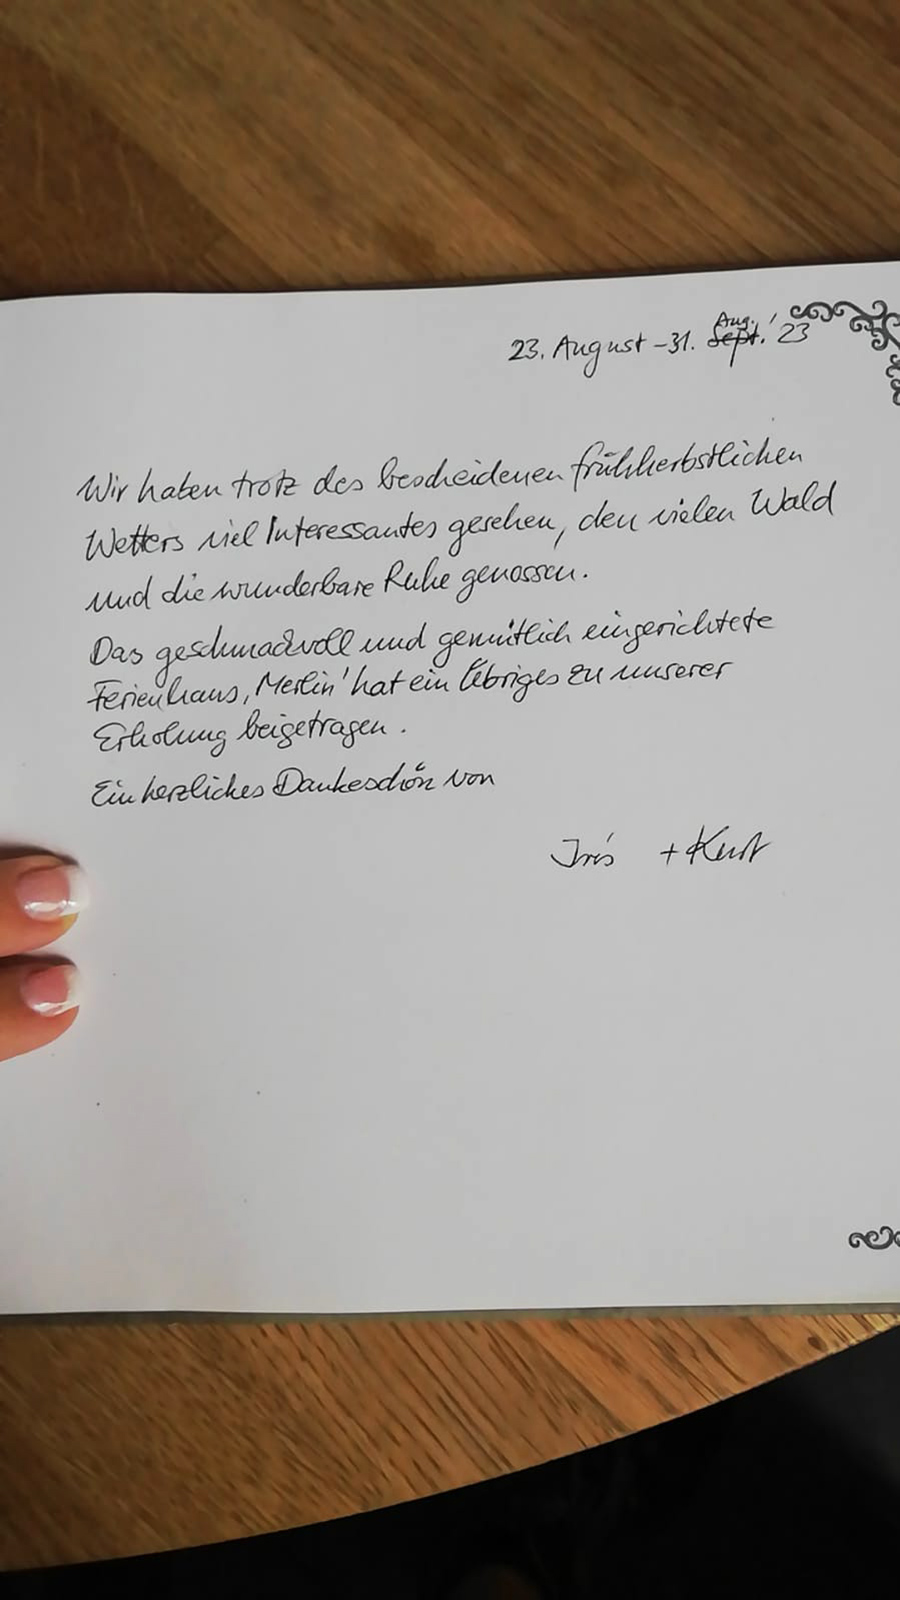 23. August – 31. Aug. Sept. '23
Wir haben trotz des bescheidenen frühherbstlichen
Wetters viel Interessantes gesehen, den vielen Wald
und die wunderbare Ruhe genossen.
Das geschmackvoll und gemütlich eingerichtete
Ferienhaus ‚Merlin' hat ein Übriges zu unserer
Erholung beigetragen.
Ein herzliches Dankeschön von
Iris + Kurt